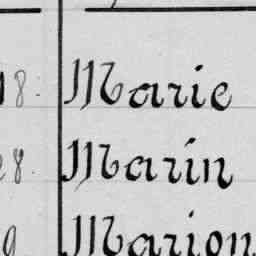 8. Marie
28. Marin
9 Marion